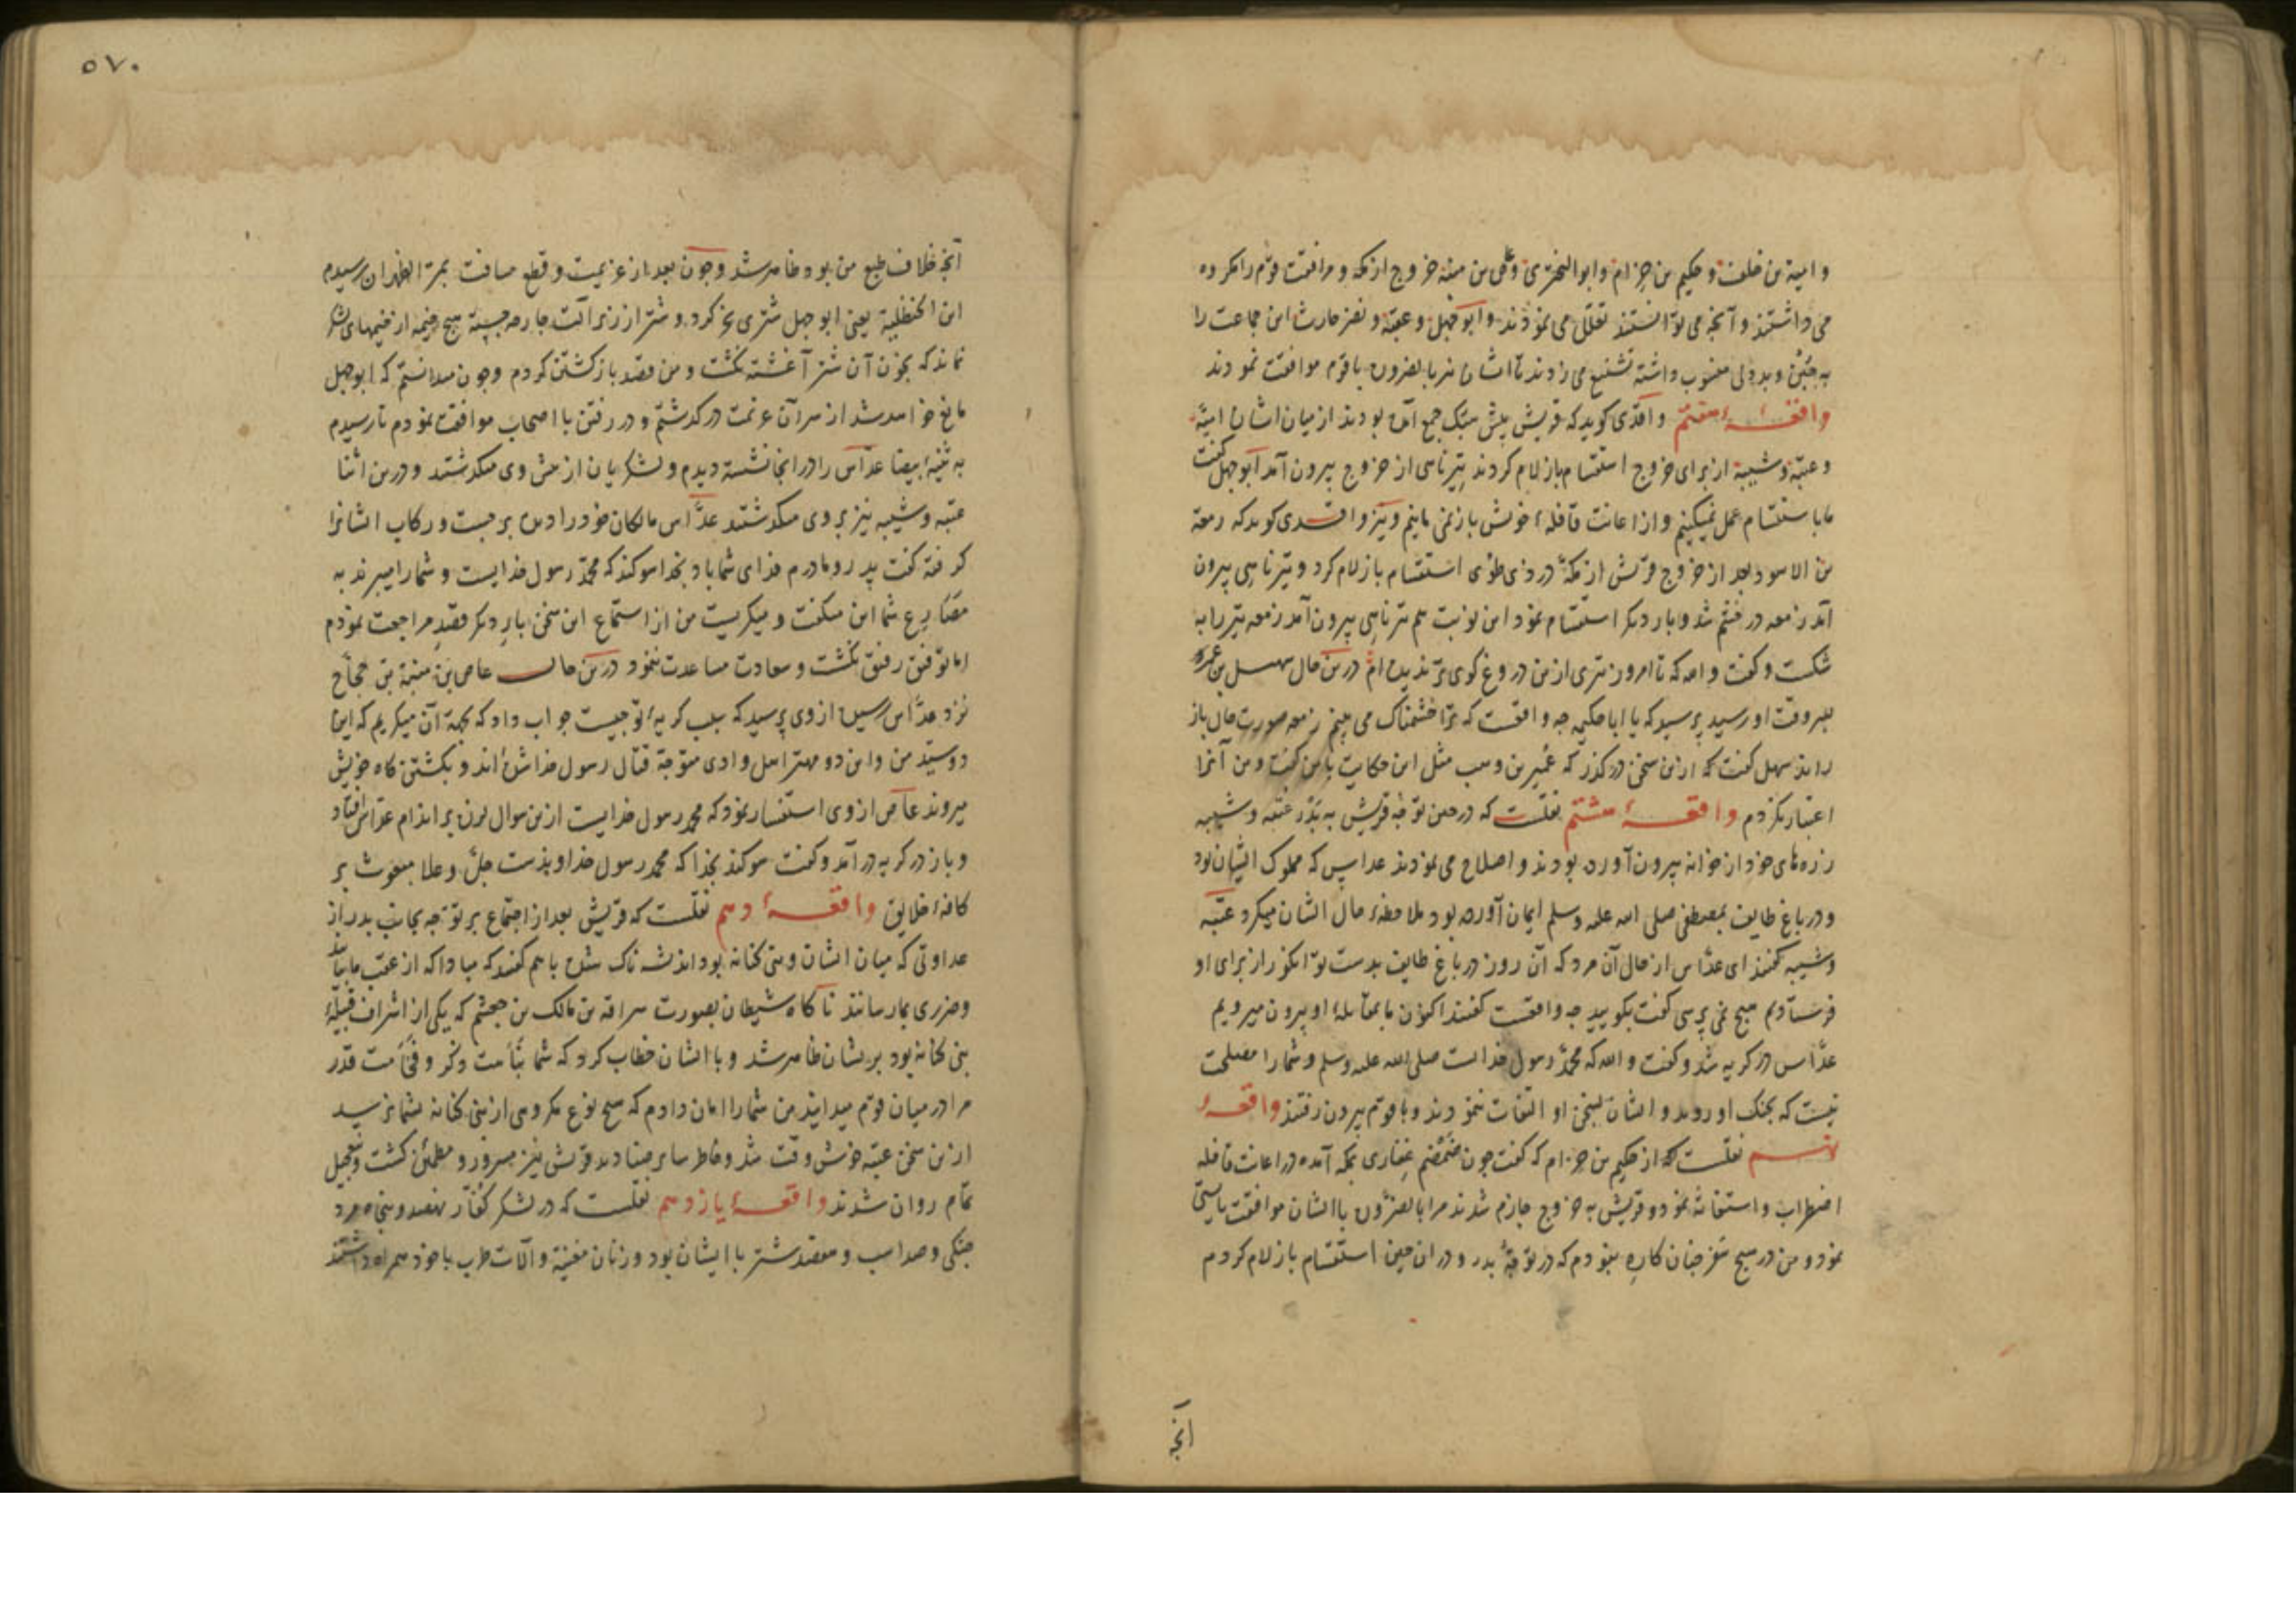 و امیة بن خلف و حکیم بن حزام و ابوالبختری و علی بن منبه خروج از مکه و مرافقت قوم را مکروه
می داشتند و آنچه می توانستند تعلل می نمودند و ابوجهل و عقبة و نضر حارث این جماعت را
به جبن و بددلی منسوب داشته تشنیع می زدند تا اشان نیز بالضروره با قوم موافقت نمودند
واقعهٔ هفتم واقدی کوید که قریش پیش هبک جمع آمده بودند از میان اشان امیة
و عتبة و شیبة از برای خروج استقسام بازلام کردند تیر ناهی از خروج بیرون آمد ابوجهل کفت
ما باستقسام عمل نمیکنیم و از اعانت قافلهٔ خویش باز نمی مانیم و نیز واقدی کوید که زمعة
بن الاسود بعد از خروج قریش از مکه در ذی طوی استقسام بازلام کرد و تیر ناهی بیرون
آمد زمعه در خشم شد و بار دیکر استقسام نمود این نوبت هم تیر ناهی بیرون آمد زمعه تیر را
شکست و کفت والله که تا امروز تیری ازین دروغ کوی تر ندیده ام درین حال سهیل بن عمرو
بسر وقت او رسید پرسید که یا ابا حکیمه چه واقعست که ترا خشمناک می بینم زمعه صورت حال باز
راند سهیل کفت که ازین سخن درکذر که عمیر بن وهب مثل این حکایت با من کفت و من آنرا
اعتبار نکردم واقعهٔ هشتم نقلست که در حین توجه قریش به بدر عتبه و شیبه
زره های خود از خزانه بیرون آورده بودند و اصلاح می نمودند عداس که مملوک ایشان بود
و در باغ طایف بمصطفی صلی الله علیه وسلم ایمان آورده بود ملاحظهٔ حال اشان میکرد عتبه
و شیبه کفتند ای عداس از حال آن مرد که آن روز در باغ طایف بدست تو انکور از برای او
فرستادیم هیچ نمی پرسی کفت بکویید چه واقعست کفتند اکنون ما بمقابلهٔ او بیرون میرویم
عداس در کریه شد و کفت والله که محمد رسول خداست صلی الله علیه وسلم و شما را مصلحت
نیست که بجنک او روید و اشان بسخن او التفات ننمودند و با قوم بیرون رفتند واقعهٔ
نهم نقلست که از حکیم بن حزام که کفت چون ضمضم غفاری بمکه آمده در اعانت قافله
اضطراب و استغاثه نمود و قریش به خروج جازم شدند مرا بالضروره با اشان موافقت بایستی
نمود و من در هیچ سفر چنان کاره نبودم که در توجه بدر و در ان حین استقسام بازلام کردم
آنچه
۵۷۰
آنچه خلاف طبع من بود ظاهر شد و چون بعد از عزیمت و قطع مسافت بمر الظهران رسیدم
ابن الحنظلیة یعنی ابوجهل شتری نحر کرد و شتر از زیر آلت جارحه جسته هیچ خیمه از خیمهای لشکر
نماند که بخون آن شتر آغشته نکشت و من قصد باز کشتن کردم و چون میدانستم که ابوجهل
مانع خواهد شد از سر آن عزیمت درکذشتم و در رفتن با اصحاب موافقت نمودم تا رسیدم
به ثنیهٔ بیضا عداس را در انجا نشسته دیدم و لشکریان از پیش وی میکذشتند و درین اثنا
عتبه و شیبه نیز بر وی میکذشتند عداس مالکان خود را دیده برجست و رکاب اشانرا
کرفته کفت پدر و مادرم فدای شما باد بخدا سوکند که محمد رسول خدایست و شما را میبرند به
مصارع شما این میکفت و میکریست من از استماع این سخن بار دیکر قصد مراجعت نمودم
اما توفیق رفیق نکشت و سعادت مساعدت ننمود درین حال عاص بن منبه بن حجاج
نزد عداس رسیده از وی پرسید که سبب کریهٔ تو چیست جواب داد که بجهة آن میکریم که این
دو سید من و این دو مهتر اهل وادی متوجه قتال رسول خدا شده اند و بکشتن کاه خویش
میروند عاص از وی استفسار نمود که محمد رسول خدایست ازین سوال لرزه بر اندام عداس افتاد
و باز در کریه در آمد و کفت سوکند بخدا که محمد رسول خداوندست جل و علا مبعوث بر
کافهٔ خلایق واقعهٔ دهم نقلست که قریش بعد از اجتماع بر توجه بجانب بدر از
عداوتی که میان اشان و بنی کنانه بود اندیشه ناک شده با هم کفتند که مبادا که از عقب ما بیایند
و ضرری بما رسانند ناکاه شیطان بصورت سراقه بن مالک بن جعشم که یکی از اشراف قبیلهٔ
بنی کنانه بود بریشان ظاهر شد و با اشان خطاب کرد که شما نباهت ذکر و فخامت قدر
مرا در میان قوم میدانید من شما را امان دادم که هیچ نوع مکروهی از بنی کنانه بشما نرسید
ازین سخن عتبه خوش وقت شد و خاطر سایر صنادید قریش نیز مسرور و مطمئن کشت و بتعجیل
تمام روان شدند واقعهٔ یازدهم نقلست که در لشکر کفار نهصد و پنجاه مرد
جنکی و صد اسب و هفصد شتر با ایشان بود و زنان مغنیة و آلات طرب با خود همراه داشتند